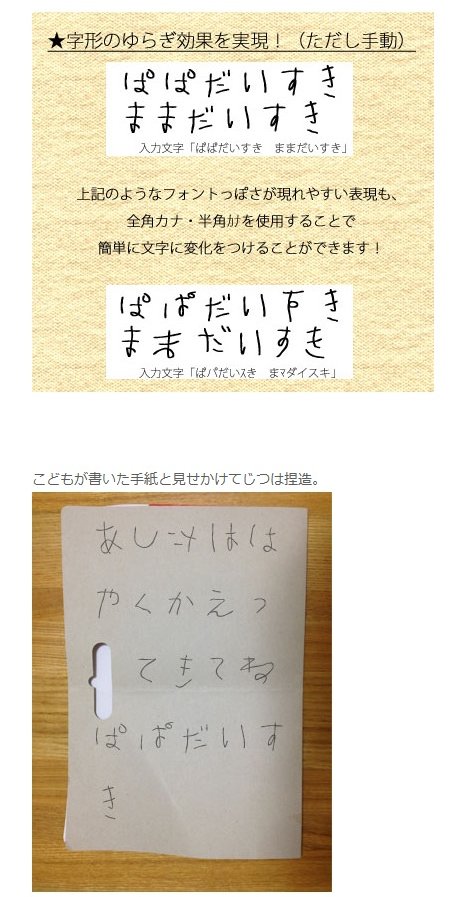 ★字形のゆらぎ効果を実現！（ただし手動）
ぱぱだいすき
ままだいすき
入力文字「ぱぱだいすき　ままだいすき」
上記のようなフォントっぽさが現れやすい表現も、
全角カナ・半角ｶﾅを使用することで
簡単に文字に変化をつけることができます！
ぱぱだいすき
ままだいすき
入力文字「ぱパだいｽき　まﾏダイスキ」
こどもが書いた手紙と見せかけてじつは捏造。
あしたはは
やくかえっ
てきてね
ぱぱだいす
き